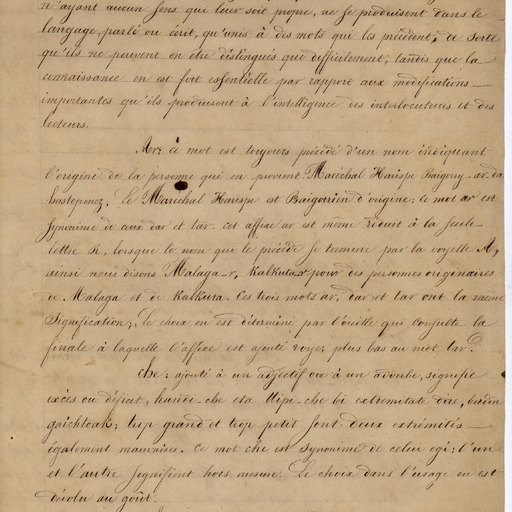 n'ayant aucun sens qui leur soit propre, ne se produisent dans le
langage, parlé ou écrit, qu'unis à des mots qui les précédent; de sorte
qu'ils ne peuvent en être distingués que difficilement, tandis que la
connaissance en est fort essentielle par rapport aux modifications
importantes qu'ils produisent à l'intelligence des interlocuteurs et des
lecteurs.
Ar: ce mot est toujours précédé d'un nom indiquant
l'origine de la personne qui en provient. Maréchal Harispe Baigorry-ar da
hastepenez, Le Maréchal Harispe est Baigorrien d'origine; ce mot ar est
synonime de ceux dar et tar: cet affixe ar est même réduit à la seule
lettre R, lorsque le nom qui le précéde se termine par la voyelle A,
ainsi nous disons Malaga-r, Kalkuta-r pour des personnes originaires
de Malaga et de Kalkuta. Ces trois mots ar, dar et tar ont la même
signification; le choix en est déterminé par l'oreille qui consulte la
finale à laquelle l'affixe est ajouté voyez plus bas au mot tar.
Che: ajouté à un adjectif ou à un adverbe, signifie
excès ou déficit, handi-che eta ttipi-che bi extremitate dire,
gaichtoak; trop grand et trop petit sont deux extrémités
également mauvaises. Ce mot che est synonime de celui egi: l'un
et l'autre signifient hors mesure. Le choix dans l'usage en est
dévolu au goût.